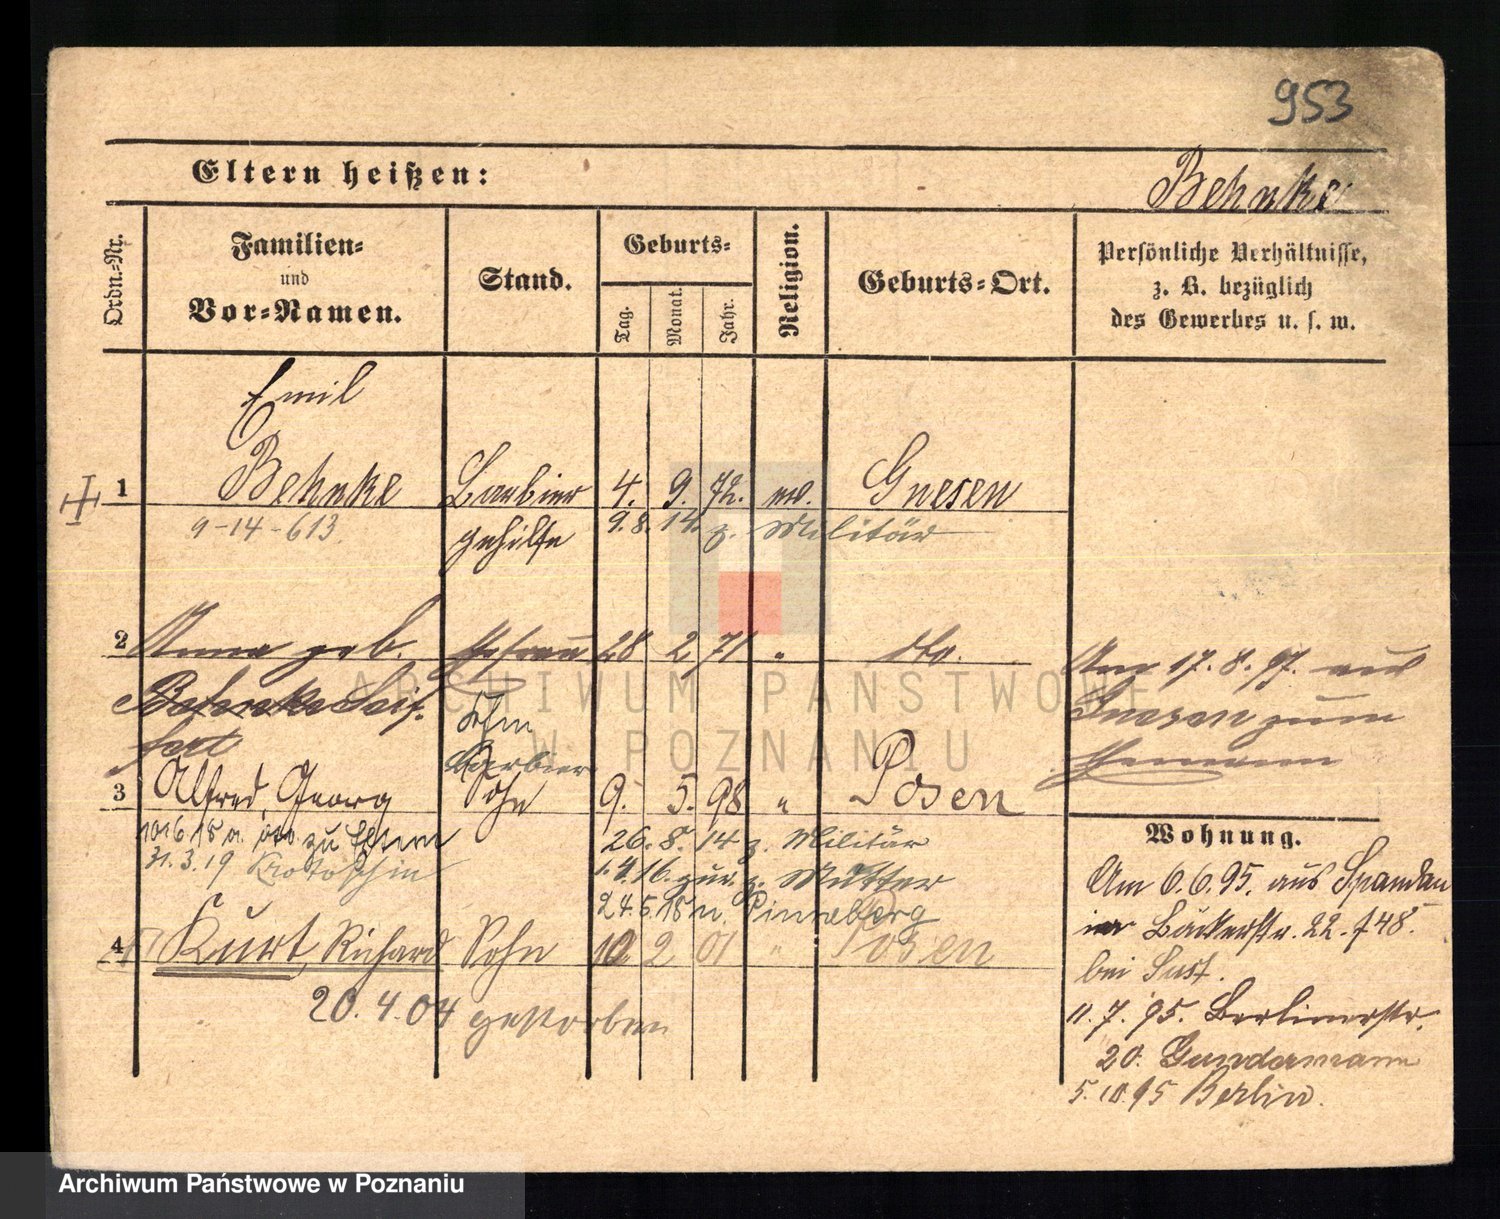 953
Eltern heißen:
Behnke
Ordn.-Nr.
Familien-
und
Vor-Namen.
Stand.
Geburts-
Tag.
Monat.
Jahr.
Religion.
Geburts-Ort.
Persönliche Verhältnisse,
z. B. bezüglich
des Gewerbes u. s. w.
Emil
1 Behnke Barbier 4. 9. 72. ev. Gnesen
9-14-613. gehilfe 9.8.14. z. Militär
2 Anna geb. Ehefrau 28 2 71 " dto.
Am 17.8.97. aus
Behnke Seif-
fert
Gnesen zum
Ehemann
ARCHIWUM PAŃSTWOWE
W POZNANIU
Barbier
3 Alfred Georg Sohn 9. 5. 98 " Posen
zu Eltern
26.8.14 z. Militär
31.3.19 Krotoschin
1.4.16. zur. z. Mutter
24.5.18 n. Pinneberg
4 Kurt, Richard Sohn 10. 2 01 " Posen
20.4.04 gestorben
Wohnung.
Am 6.6.95. aus Spandau
Bäckerstr. 22. f 48.
bei Just.
11.7.95. Berlinerstr.
20. Gundermann
5.10.95 Berlin.
Archiwum Państwowe w Poznaniu